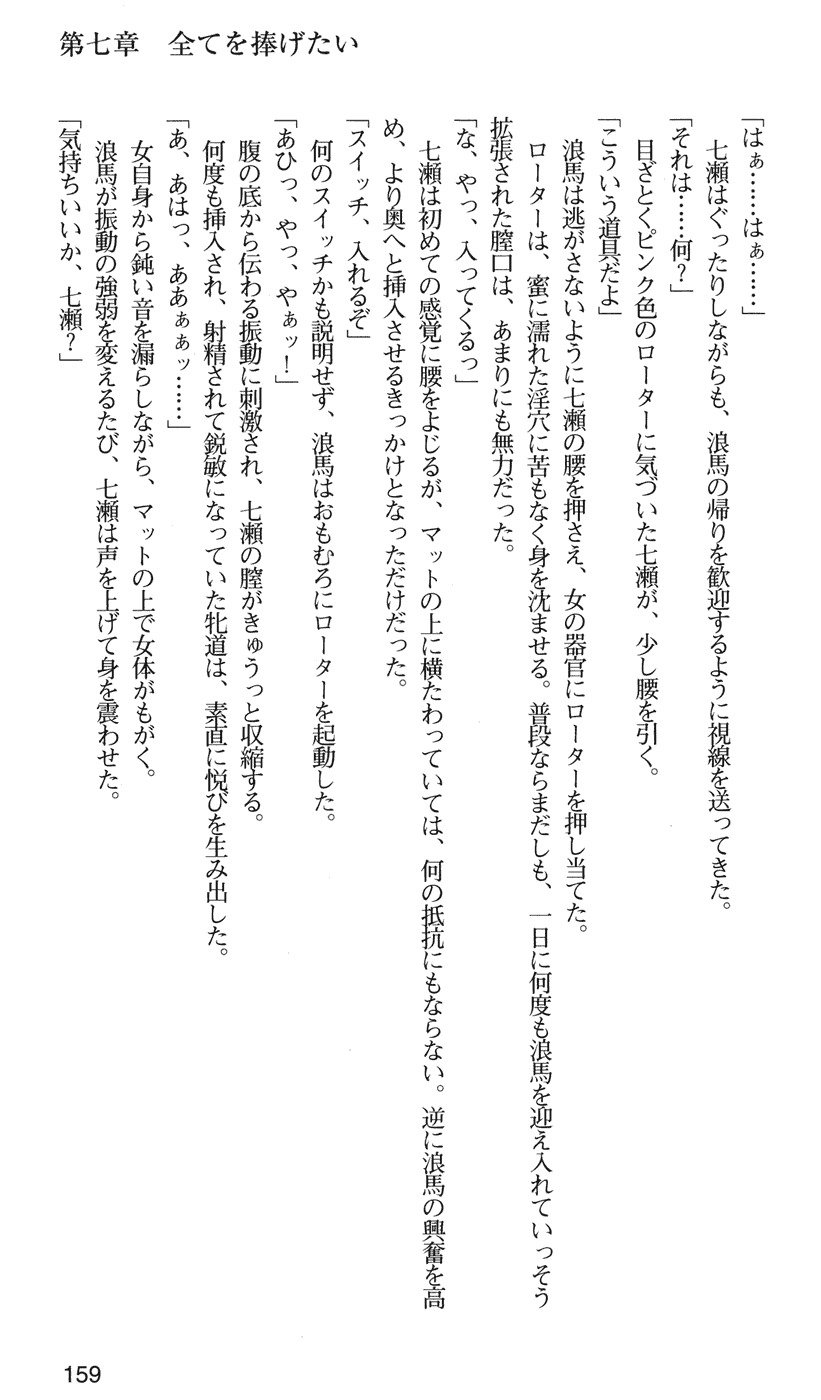 第七章　全てを捧げたい
「はぁ……はぁ……」
七瀬はぐったりしながらも、浪馬の帰りを歓迎するように視線を送ってきた。
「それは……何？」
目ざとくピンク色のローターに気づいた七瀬が、少し腰を引く。
「こういう道具だよ」
浪馬は逃がさないように七瀬の腰を押さえ、女の器官にローターを押し当てた。
ローターは、蜜に濡れた淫穴に苦もなく身を沈ませる。普段ならまだしも、一日に何度も浪馬を迎え入れていっそう
拡張された膣口は、あまりにも無力だった。
「な、やっ、入ってくるっ」
七瀬は初めての感覚に腰をよじるが、マットの上に横たわっていては、何の抵抗にもならない。逆に浪馬の興奮を高
め、より奥へと挿入させるきっかけとなっただけだった。
「スイッチ、入れるぞ」
何のスイッチかも説明せず、浪馬はおもむろにローターを起動した。
「あひっ、やっ、やぁッ！」
腹の底から伝わる振動に刺激され、七瀬の膣がきゅうっと収縮する。
何度も挿入され、射精されて鋭敏になっていた牝道は、素直に悦びを生み出した。
「あ、あはっ、ああぁぁッ……」
女自身から鈍い音を漏らしながら、マットの上で女体がもがく。
浪馬が振動の強弱を変えるたび、七瀬は声を上げて身を震わせた。
「気持ちいいか、七瀬？」
159